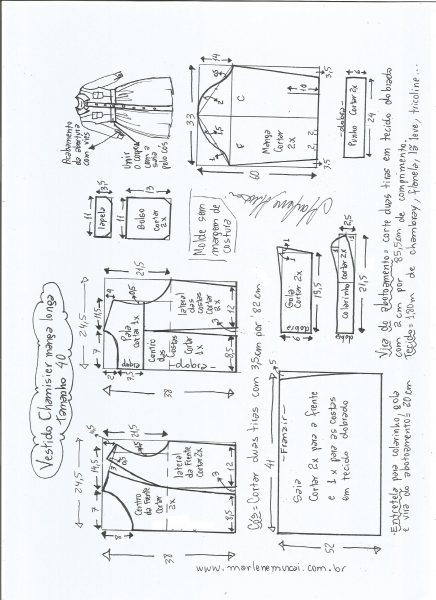 Vestido Chamisier manga longa
Tamanho 40
24,5
7
14,5
3,5
21,5
8
38
Centro da Frente
Cortar
2x
lateral da Frente
Cortar 2x
8,5
3
12
24,5
7
11,5
21,5
2
7,5
Pala
Cortar 1x
dobra
Centro
das
Costas
Cortar
1x
lateral
das costas
Cortar
2x
38
8,5
3
12
Cós= Cortar duas tiras com 3,5cm por 82cm
11
3,5
lapela
11
13
Bolso
Cortar
2x
Molde sem
margem de
costura
Acabamento
da abertura
com viés
Unir
o corpo
com a
saia
pelo cós
33
14
60
F
C
Manga
Cortar
2x
10
3,5
3,5
-dobra-
Punho
Cortar 2x
6
24
Gola
Cortar 2x
dobra
6
19,5
2,5
colarinho Cortar 2x
dobra
21,5
41
5
-Franzir-
Saia
Cortar 2x para a frente
e 1x para as costas
em tecido dobrado
52
Vira do abotoamento= corte duas tiras em tecido dobrado
com 2cm por 85,5cm de comprimento.
Tecido= 1,80m de chambray, flanela, lã leve, tricoline...
Entretela para colarinho, gola
e vira do abotoamento= 20cm
www.marlenemukai.com.br